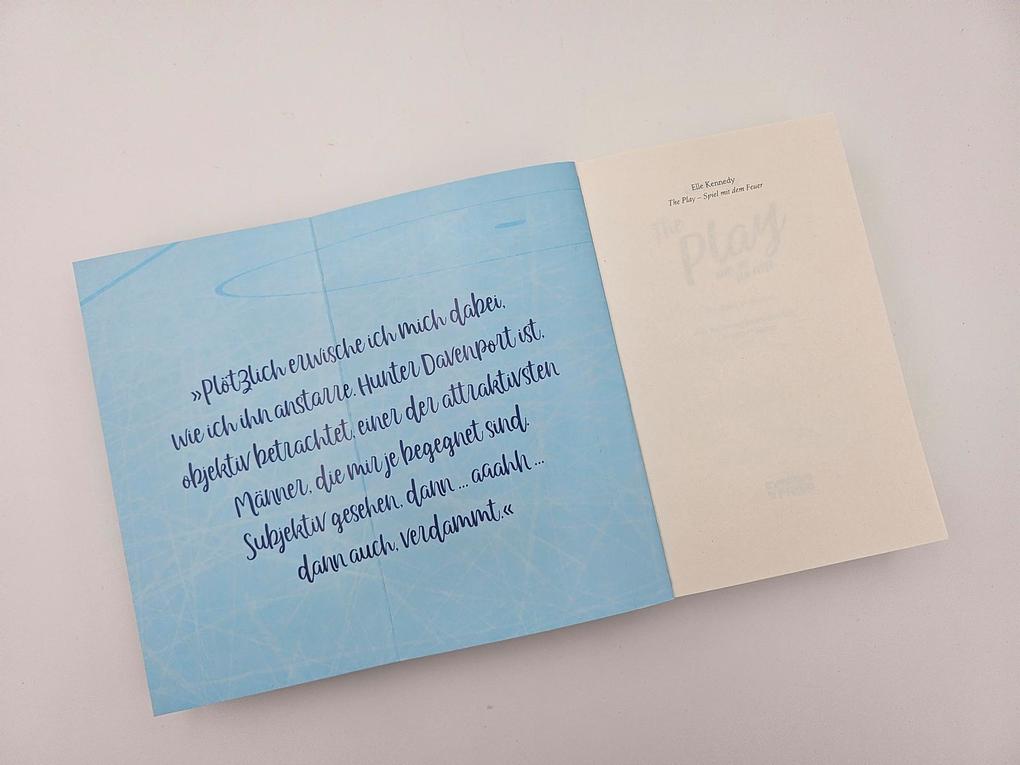 »Plötzlich erwische ich mich dabei,
wie ich ihn anstarre. Hunter Davenport ist,
objektiv betrachtet, einer der attraktivsten
Männer, die mir je begegnet sind.
Subjektiv gesehen, dann ... aaahh ...
dann auch, verdammt.«
Elle Kennedy
The Play – Spiel mit dem Feuer
The
Play